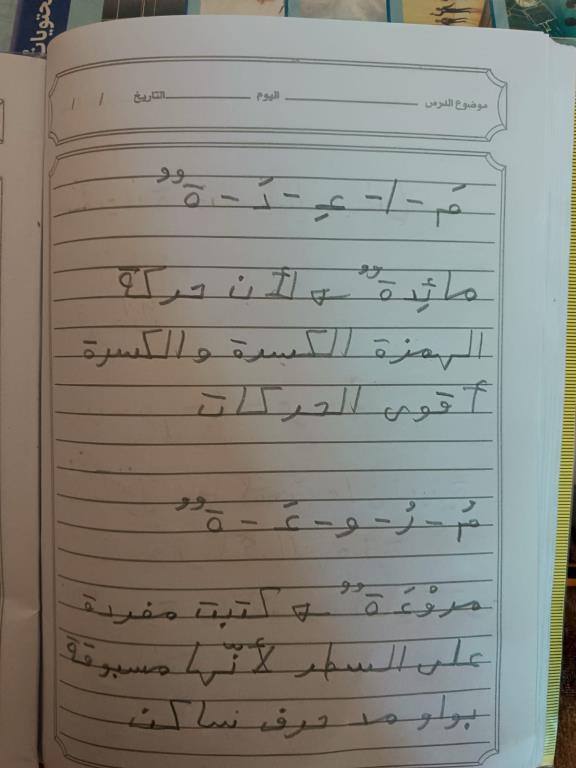 محتويات
موضوع الدرس ـــــــــ اليوم ـــــــــ التاريخ / /
مَ - ا - ءِ - دَ - ةٌ
مائِدةٌ ← لأن حركة
الهمزة الكسرة والكسرة
أقوى الحركات
مُ - رُ - و - ءَ - ةٌ
مروْءَةٌ ← كتبت مفردة
على السطر لأنّها مسبوقة
بواو مد حرف ساكن